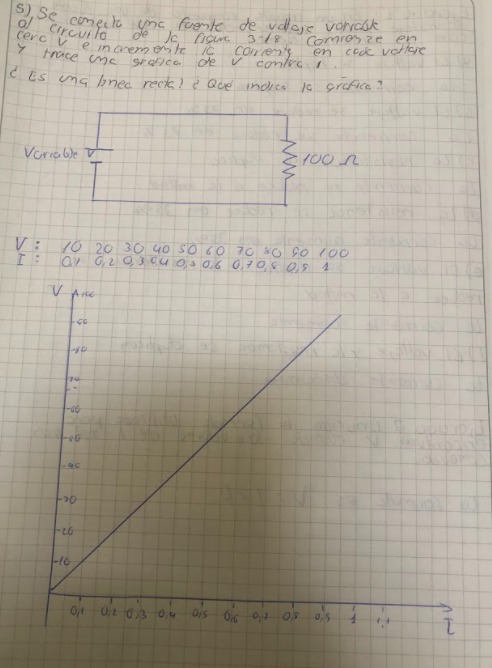 5) Se conecta una fuente de voltaje variable
al circuito de la figura 3-18. Comience en
cero V e incremente la corriente en cada voltaje
y trace una gráfica de V contra I.
¿Es una línea recta? ¿Qué indica la gráfica?
Variable V
100 Ω
V: 10 20 30 40 50 60 70 80 90 100
I: 0,1 0,2 0,3 0,4 0,5 0,6 0,7 0,8 0,9 1
V
100
90
80
70
60
50
40
30
20
10
0,1 0,2 0,3 0,4 0,5 0,6 0,7 0,8 0,9 1 1,1
I